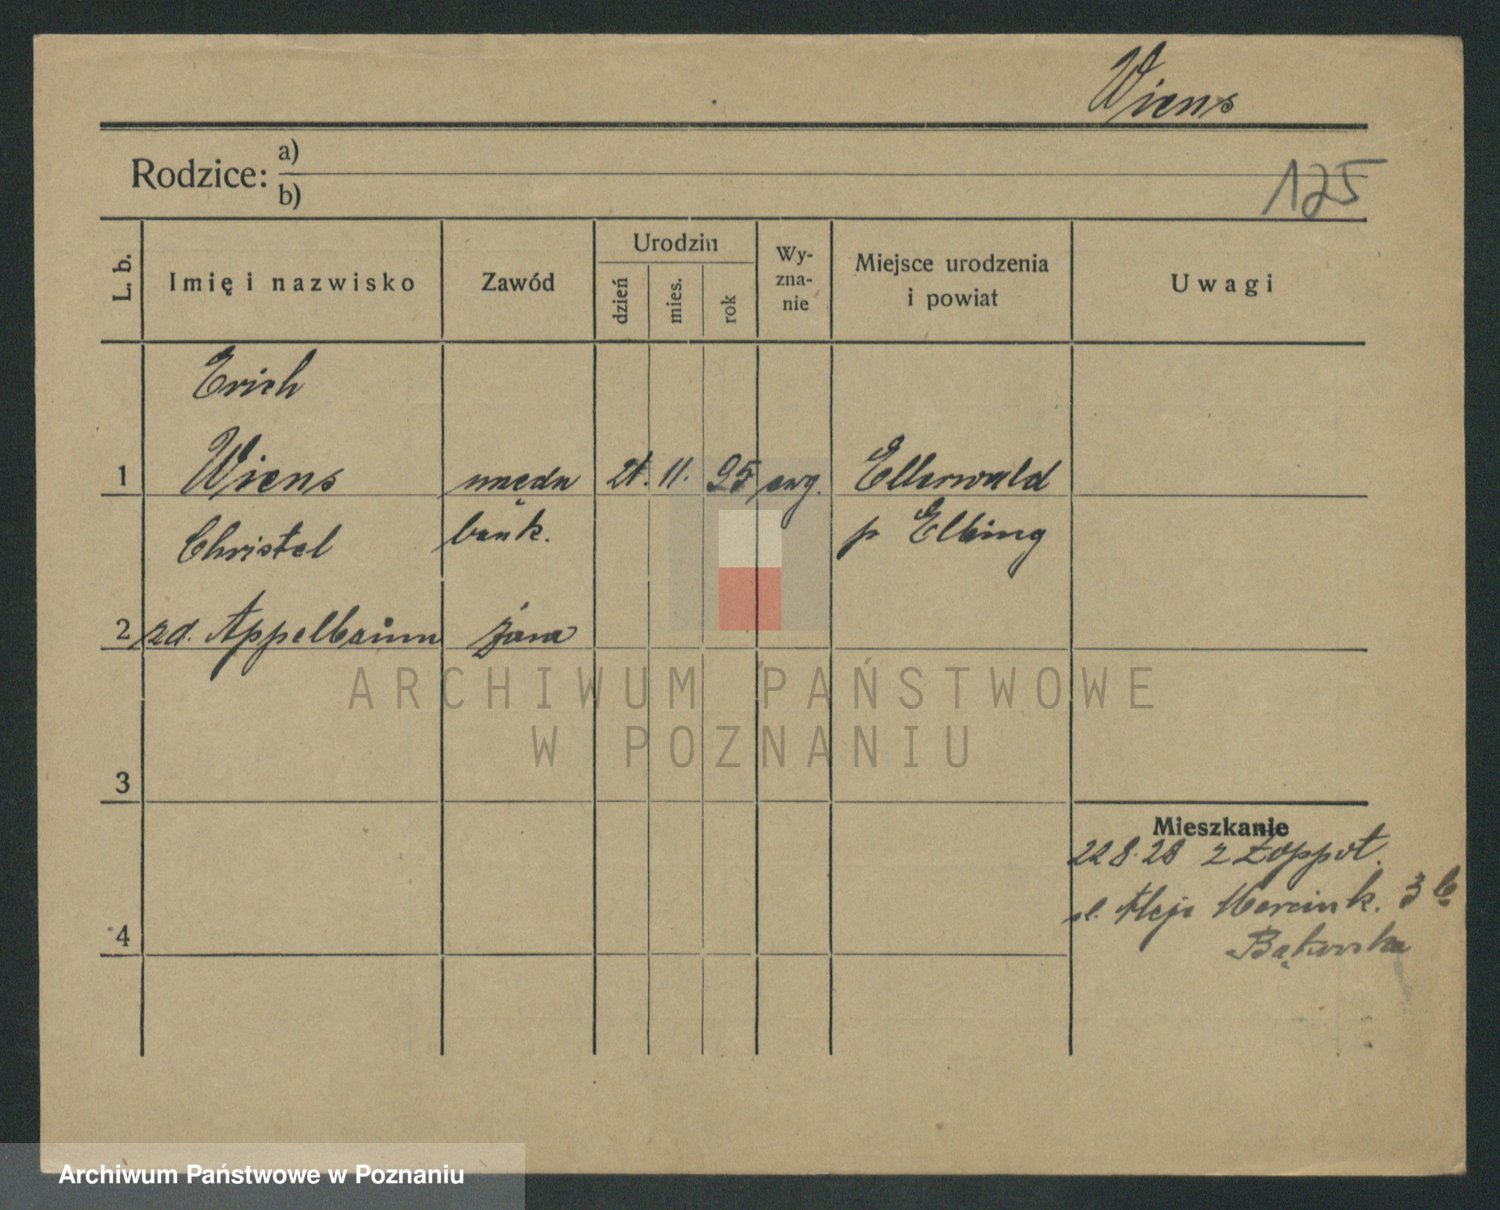 Wiens
Rodzice: a)
b)
125
L. b.
Imię i nazwisko
Zawód
Urodzin
dzień
mies.
rok
Wy-
zna-
nie
Miejsce urodzenia
i powiat
Uwagi
Erich
1 Wiens urzędn 21. 11. 95 ewg. Ellerwald
Christel bank. p Elbing
2 zd. Appelbaum żona
3
4
Mieszkanie
22 8. 28 z Zoppot.
ul. Aleje Marcink. 3 b
Bąkowska
ARCHIWUM PAŃSTWOWE
W POZNANIU
Archiwum Państwowe w Poznaniu